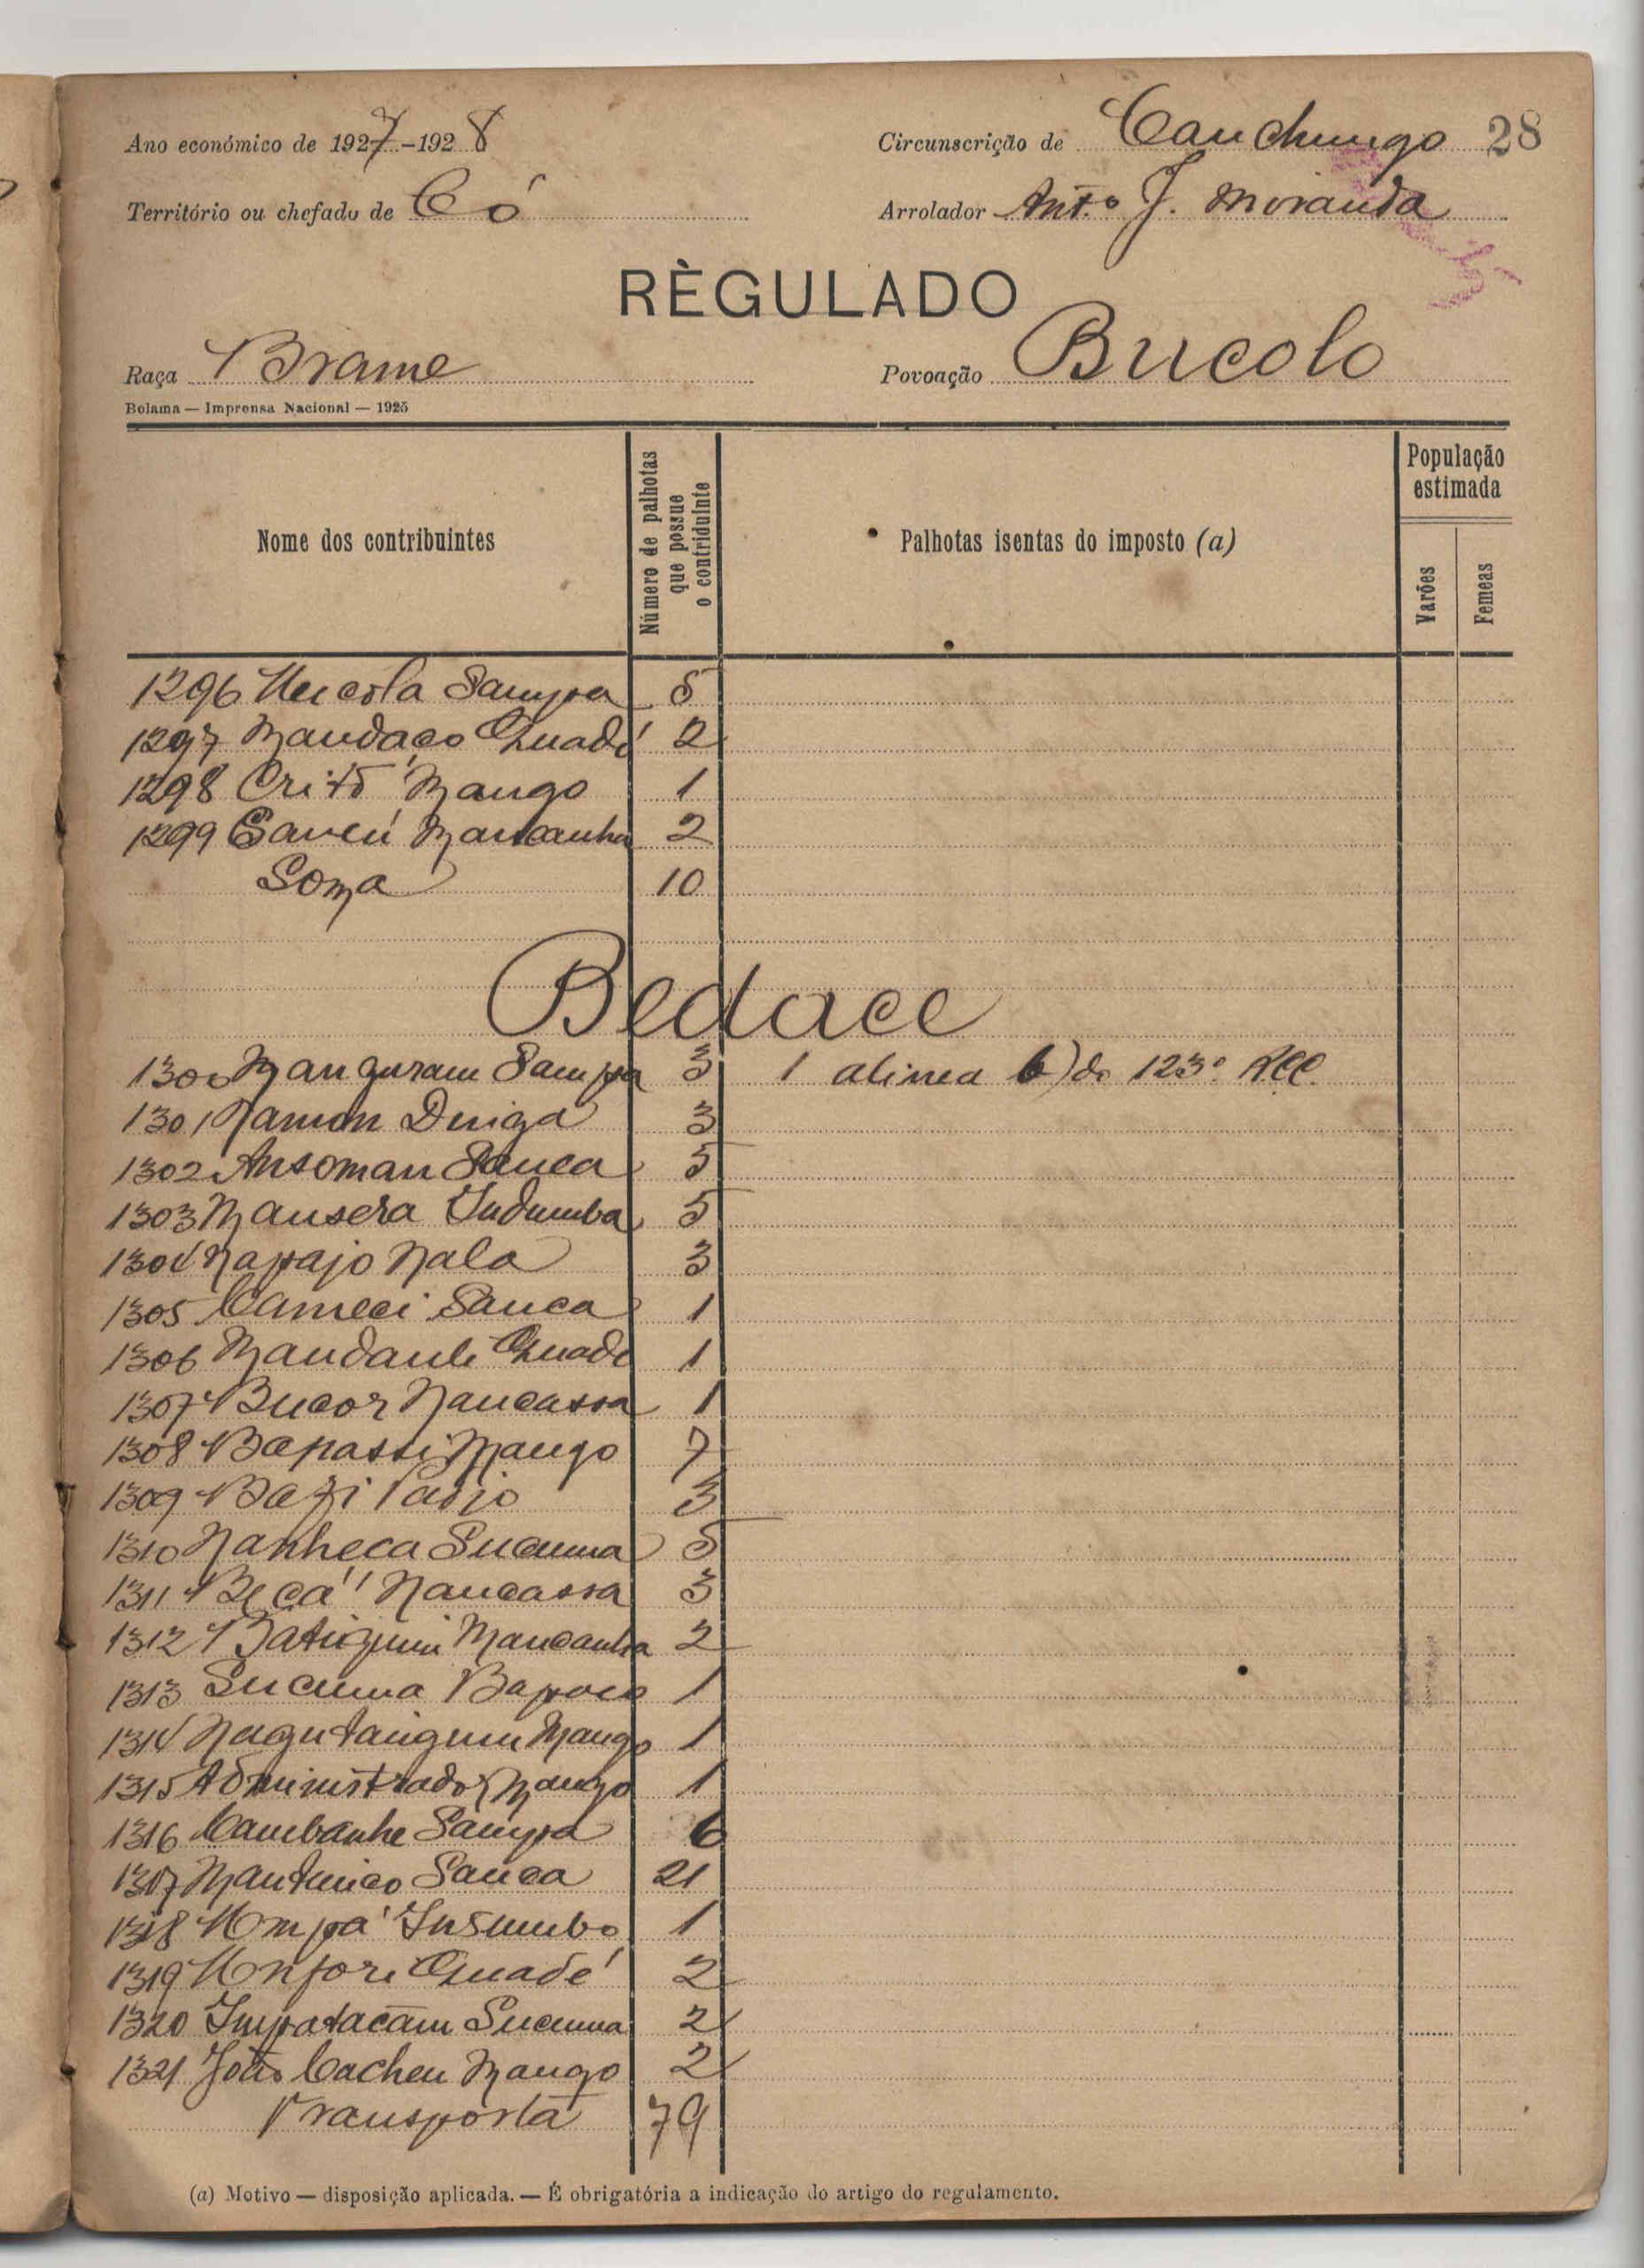 Ano económico de 1927-1928
Circunscrição de Canchungo 28
Território ou chefado de Có
Arrolador Ant.º J. Miranda
RÈGULADO
Raça Brame
Povoação Bucolo
Bolama — Imprensa Nacional — 1925
Nome dos contribuintes
Número de palhotas que possue o contriduinte
Palhotas isentas do imposto (a)
População estimada
Varões
Femeas
1296 Sampa 5
1297 Mandaco Quadé 2
1298 Critó Mango 1
1299 Mancanha 2
Soma 10
Bedace
1300 Manguram Sampa 3 1 alinea b) do 123º RCC.
1301 Namon Duiga 3
1302 Ansoman Sanca 5
1303 Mansera Indumba 5
1304 Napajo Nala 3
1305 Cameci Sanca 1
1306 Quadé 1
1307 Bucor Nancassa 1
1308 Bapassi Mango 7
1309 3
1310 Nanheca Sucuma 5
1311 Beca Nancassa 3
1312 Mancanha 2
1313 Sucuma Bapoco 1
1314 Mango 1
1315 Administrador Mango 1
1316 Cambanhe Sampa 6
1317 Sanca 21
1318 Ompá Insumbo 1
1319 Quadé 2
1320 Impatacam Sucuma 2
1321 João Cacheu Mango 2
Transporta 79
(a) Motivo — disposição aplicada. — É obrigatória a indicação do artigo do regulamento.